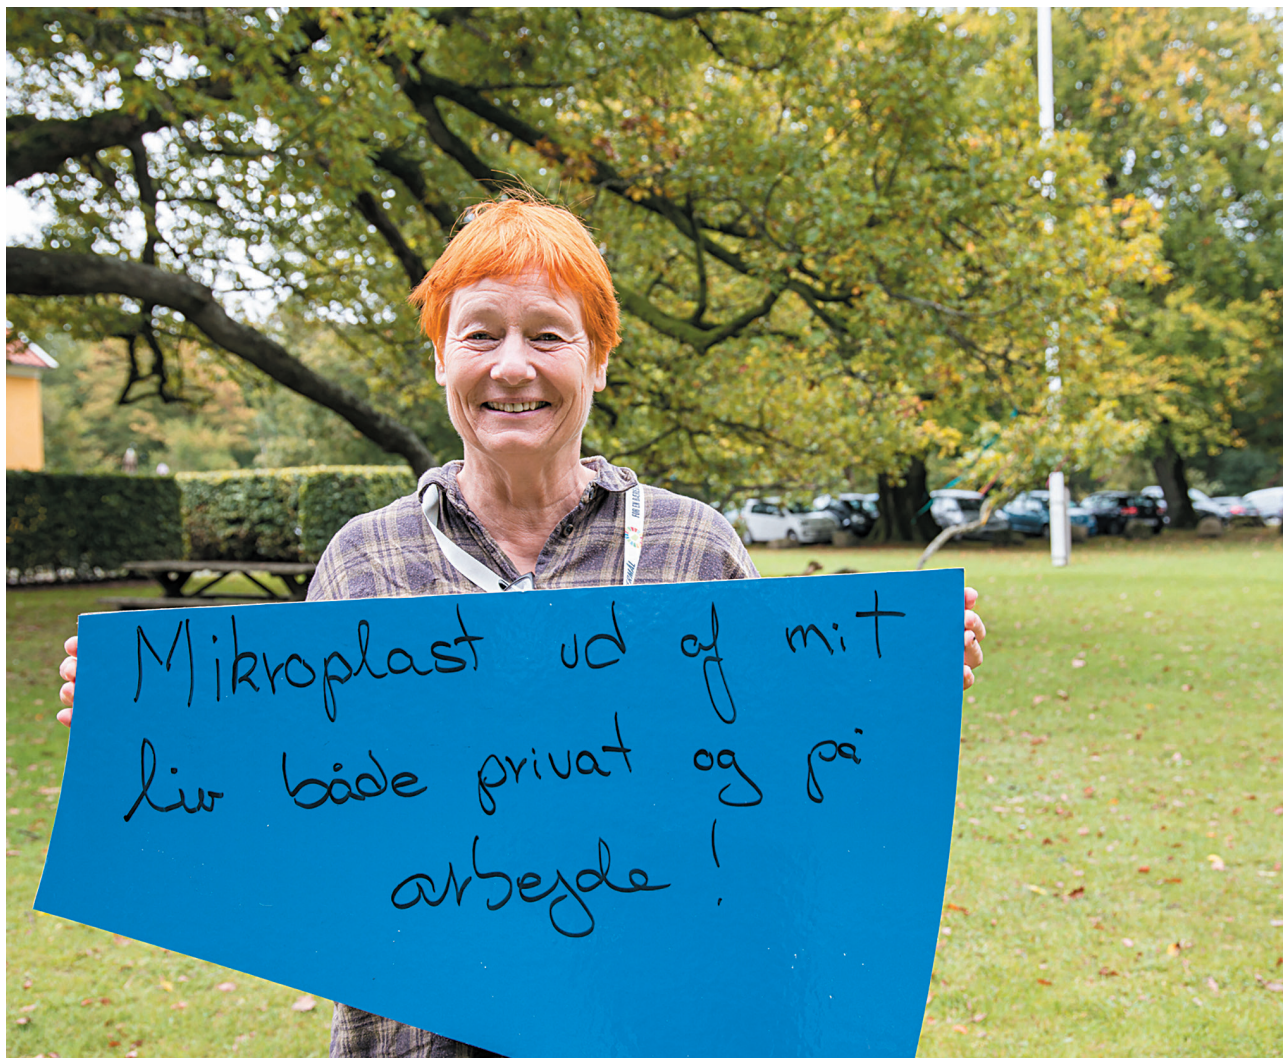 Mikroplast ud af mit
liv både privat og på
arbejde!